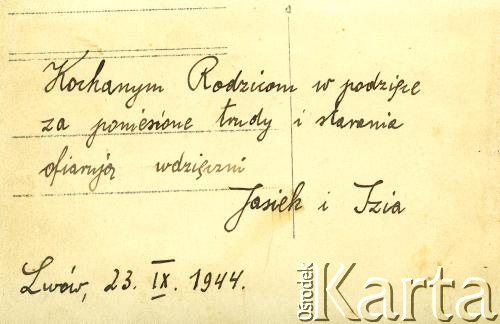 Kochanym Rodzicom w podzięce
za poniesione trudy i starania
ofiarują wdzięczni
Jasiek i Izia
Lwów, 23. IX. 1944.
Ośrodek
Karta